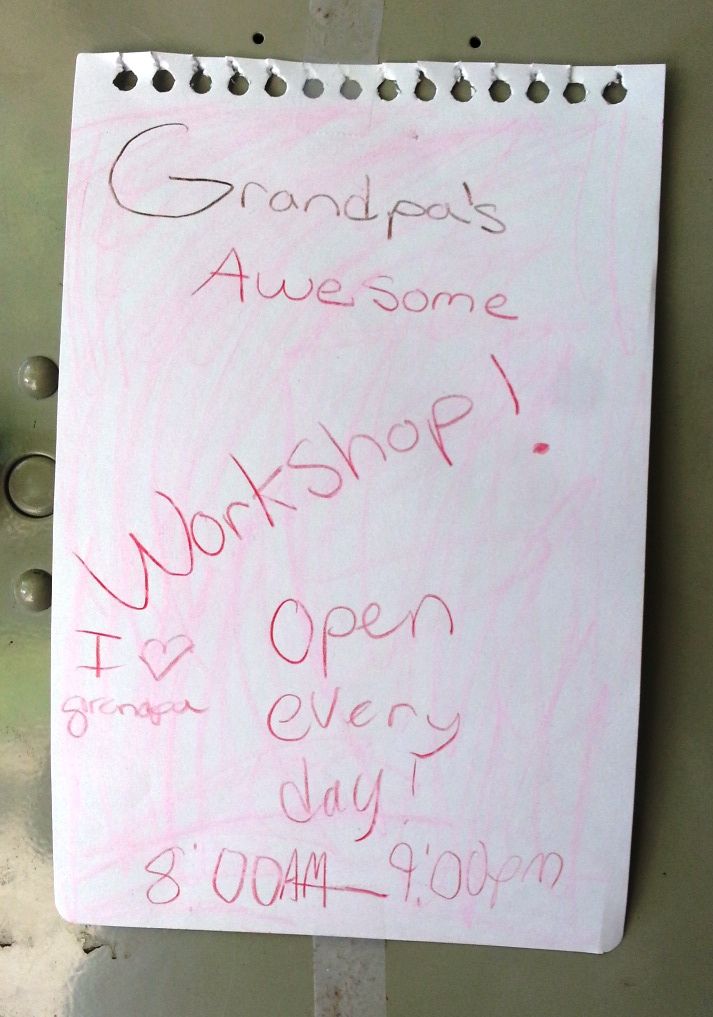 Grandpa's
Awesome
Workshop!
I ♡
grandpa
Open
every
day!
8:00AM—9:00pm